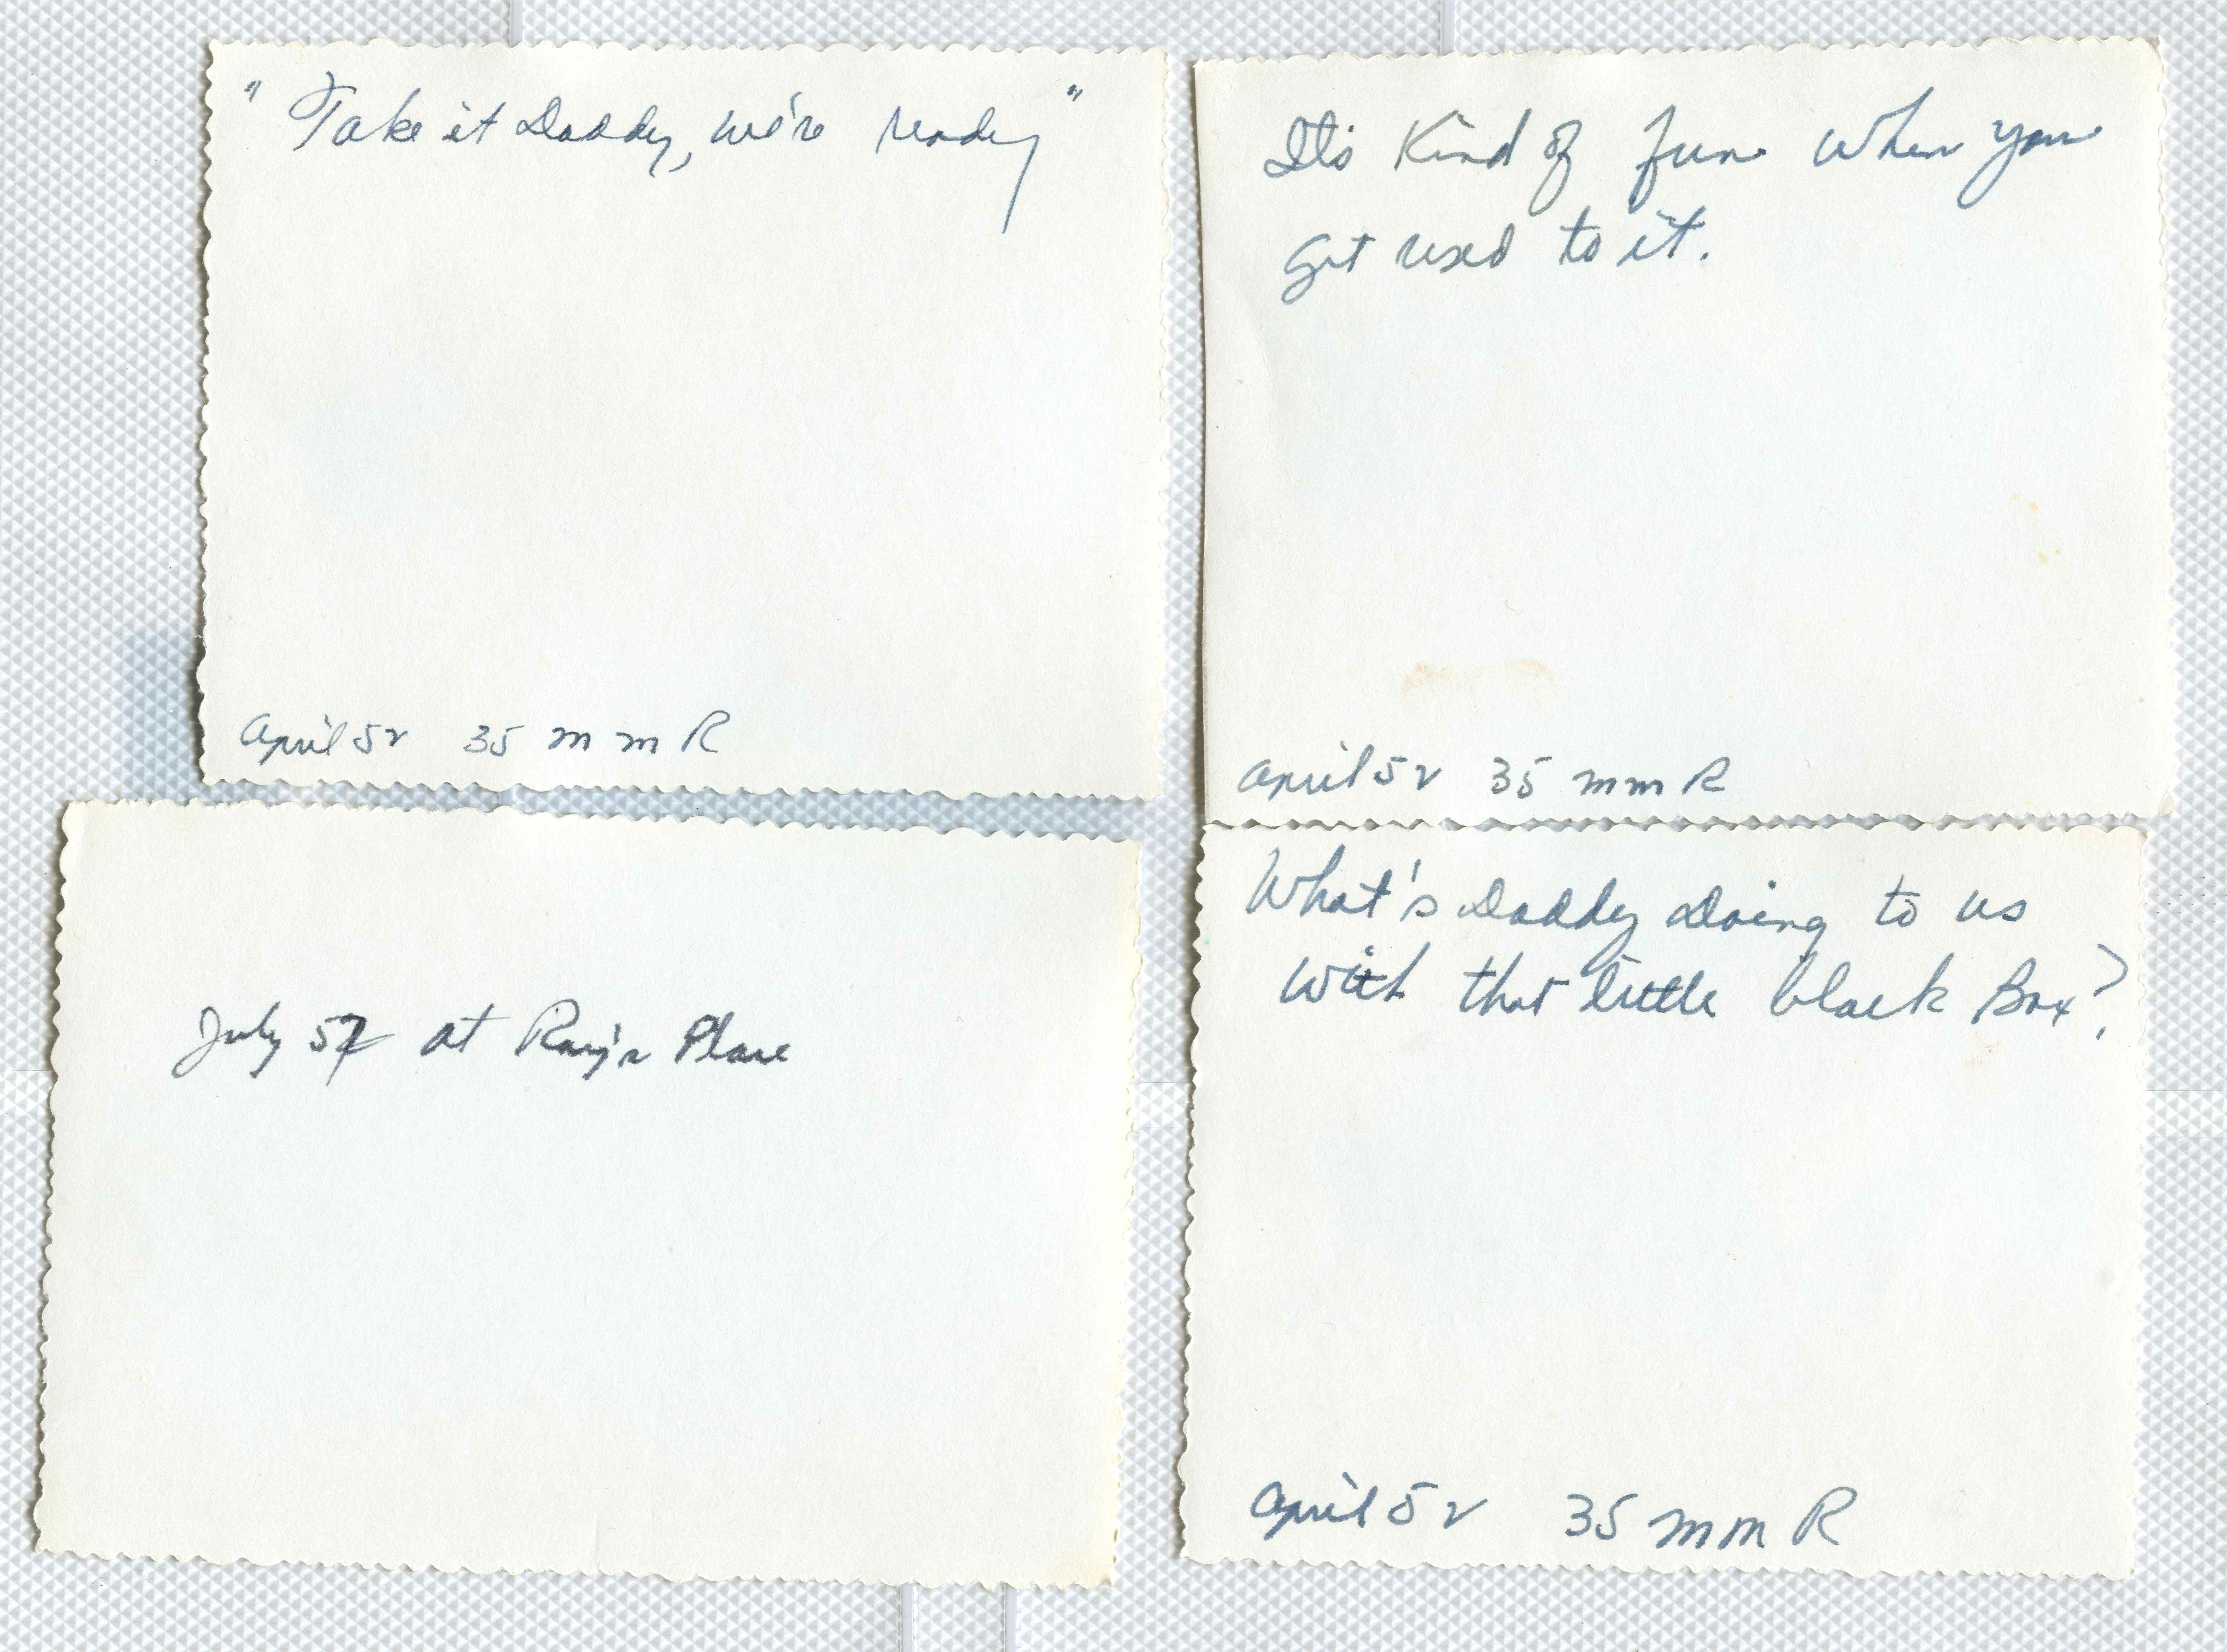 "Take it Daddy, we're ready"
April 52 35 mm R
It's Kind of fun when you
get used to it.
April 52 35 mm R
July 52 at Ray's Place
What's Daddy Doing to us
with that little black Box?
April 52 35 mm R